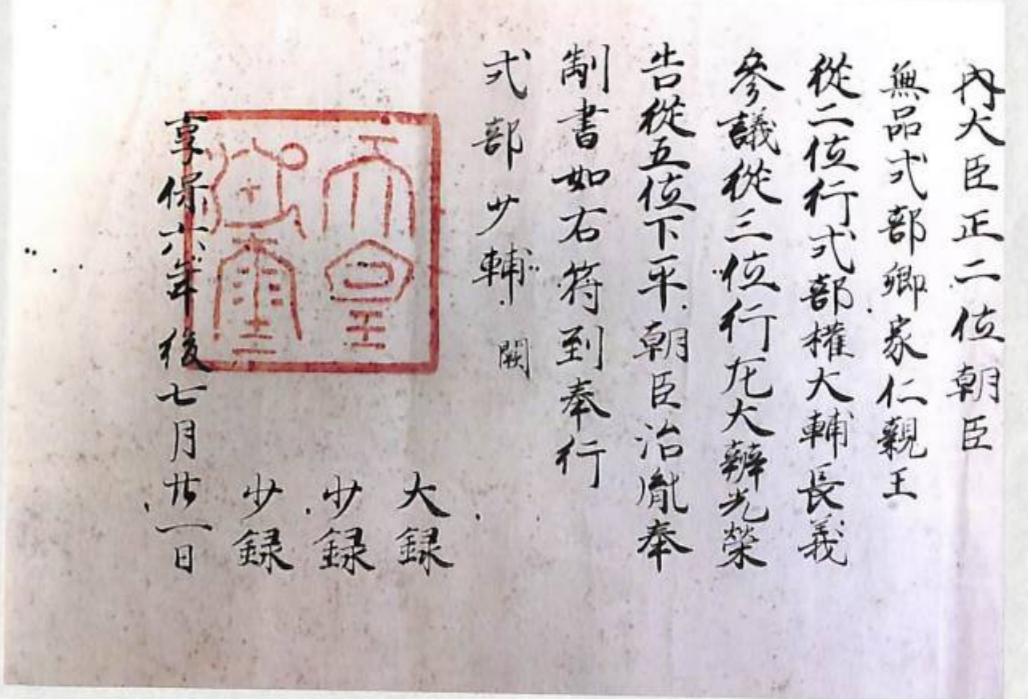 内大臣正二位朝臣
無品式部卿家仁親王
從二位行式部權大輔長義
參議從三位行左大辨光榮
告從五位下平朝臣治胤奉
制書如右符到奉行
式部少輔闕
大録
少録
少録
享保六年後七月廿一日
天皇
御璽